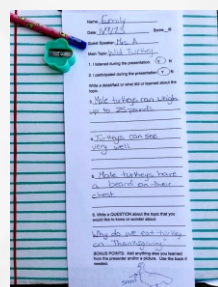 Name: Emily
Date: 5/9/23 Room:
Guest Speaker: Mrs. A
Main Topic: Wild Turkey
1. I listened during the presentation. Y N
2. I participated during the presentation. Y N
Write a detail/fact or what did or learned about the
topic.
Male turkeys can weigh
up to 25 pounds
Turkeys can see
very well
Male turkeys have
a beard on their
chest
6. Write a QUESTION about the topic that you
would like to know or wonder about.
Why do we eat turkey
on Thanksgiving
BONUS POINTS: Add anything else you learned
from the presenter and/or a picture. Use the back if
needed.